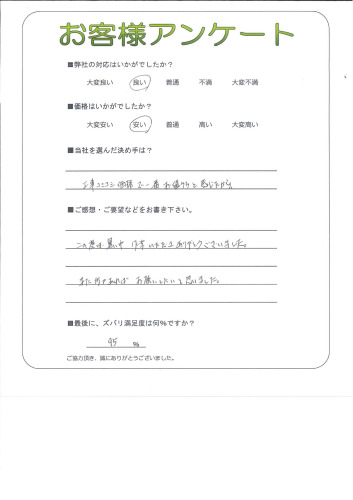 お客様アンケート
■弊社の対応はいかがでしたか？
大変良い 良い 普通 不満 大変不満
■価格はいかがでしたか？
大変安い 安い 普通 高い 大変高い
■当社を選んだ決め手は？
価格で一番お値打ちと感じたから
■ご感想・ご要望などをお書き下さい。
この度は暑い中 作業いただきありがとうございました。
また何かあれば お願いしたいと思いました。
■最後に、ズバリ満足度は何%ですか？
95 %
ご協力頂き、誠にありがとうございました。